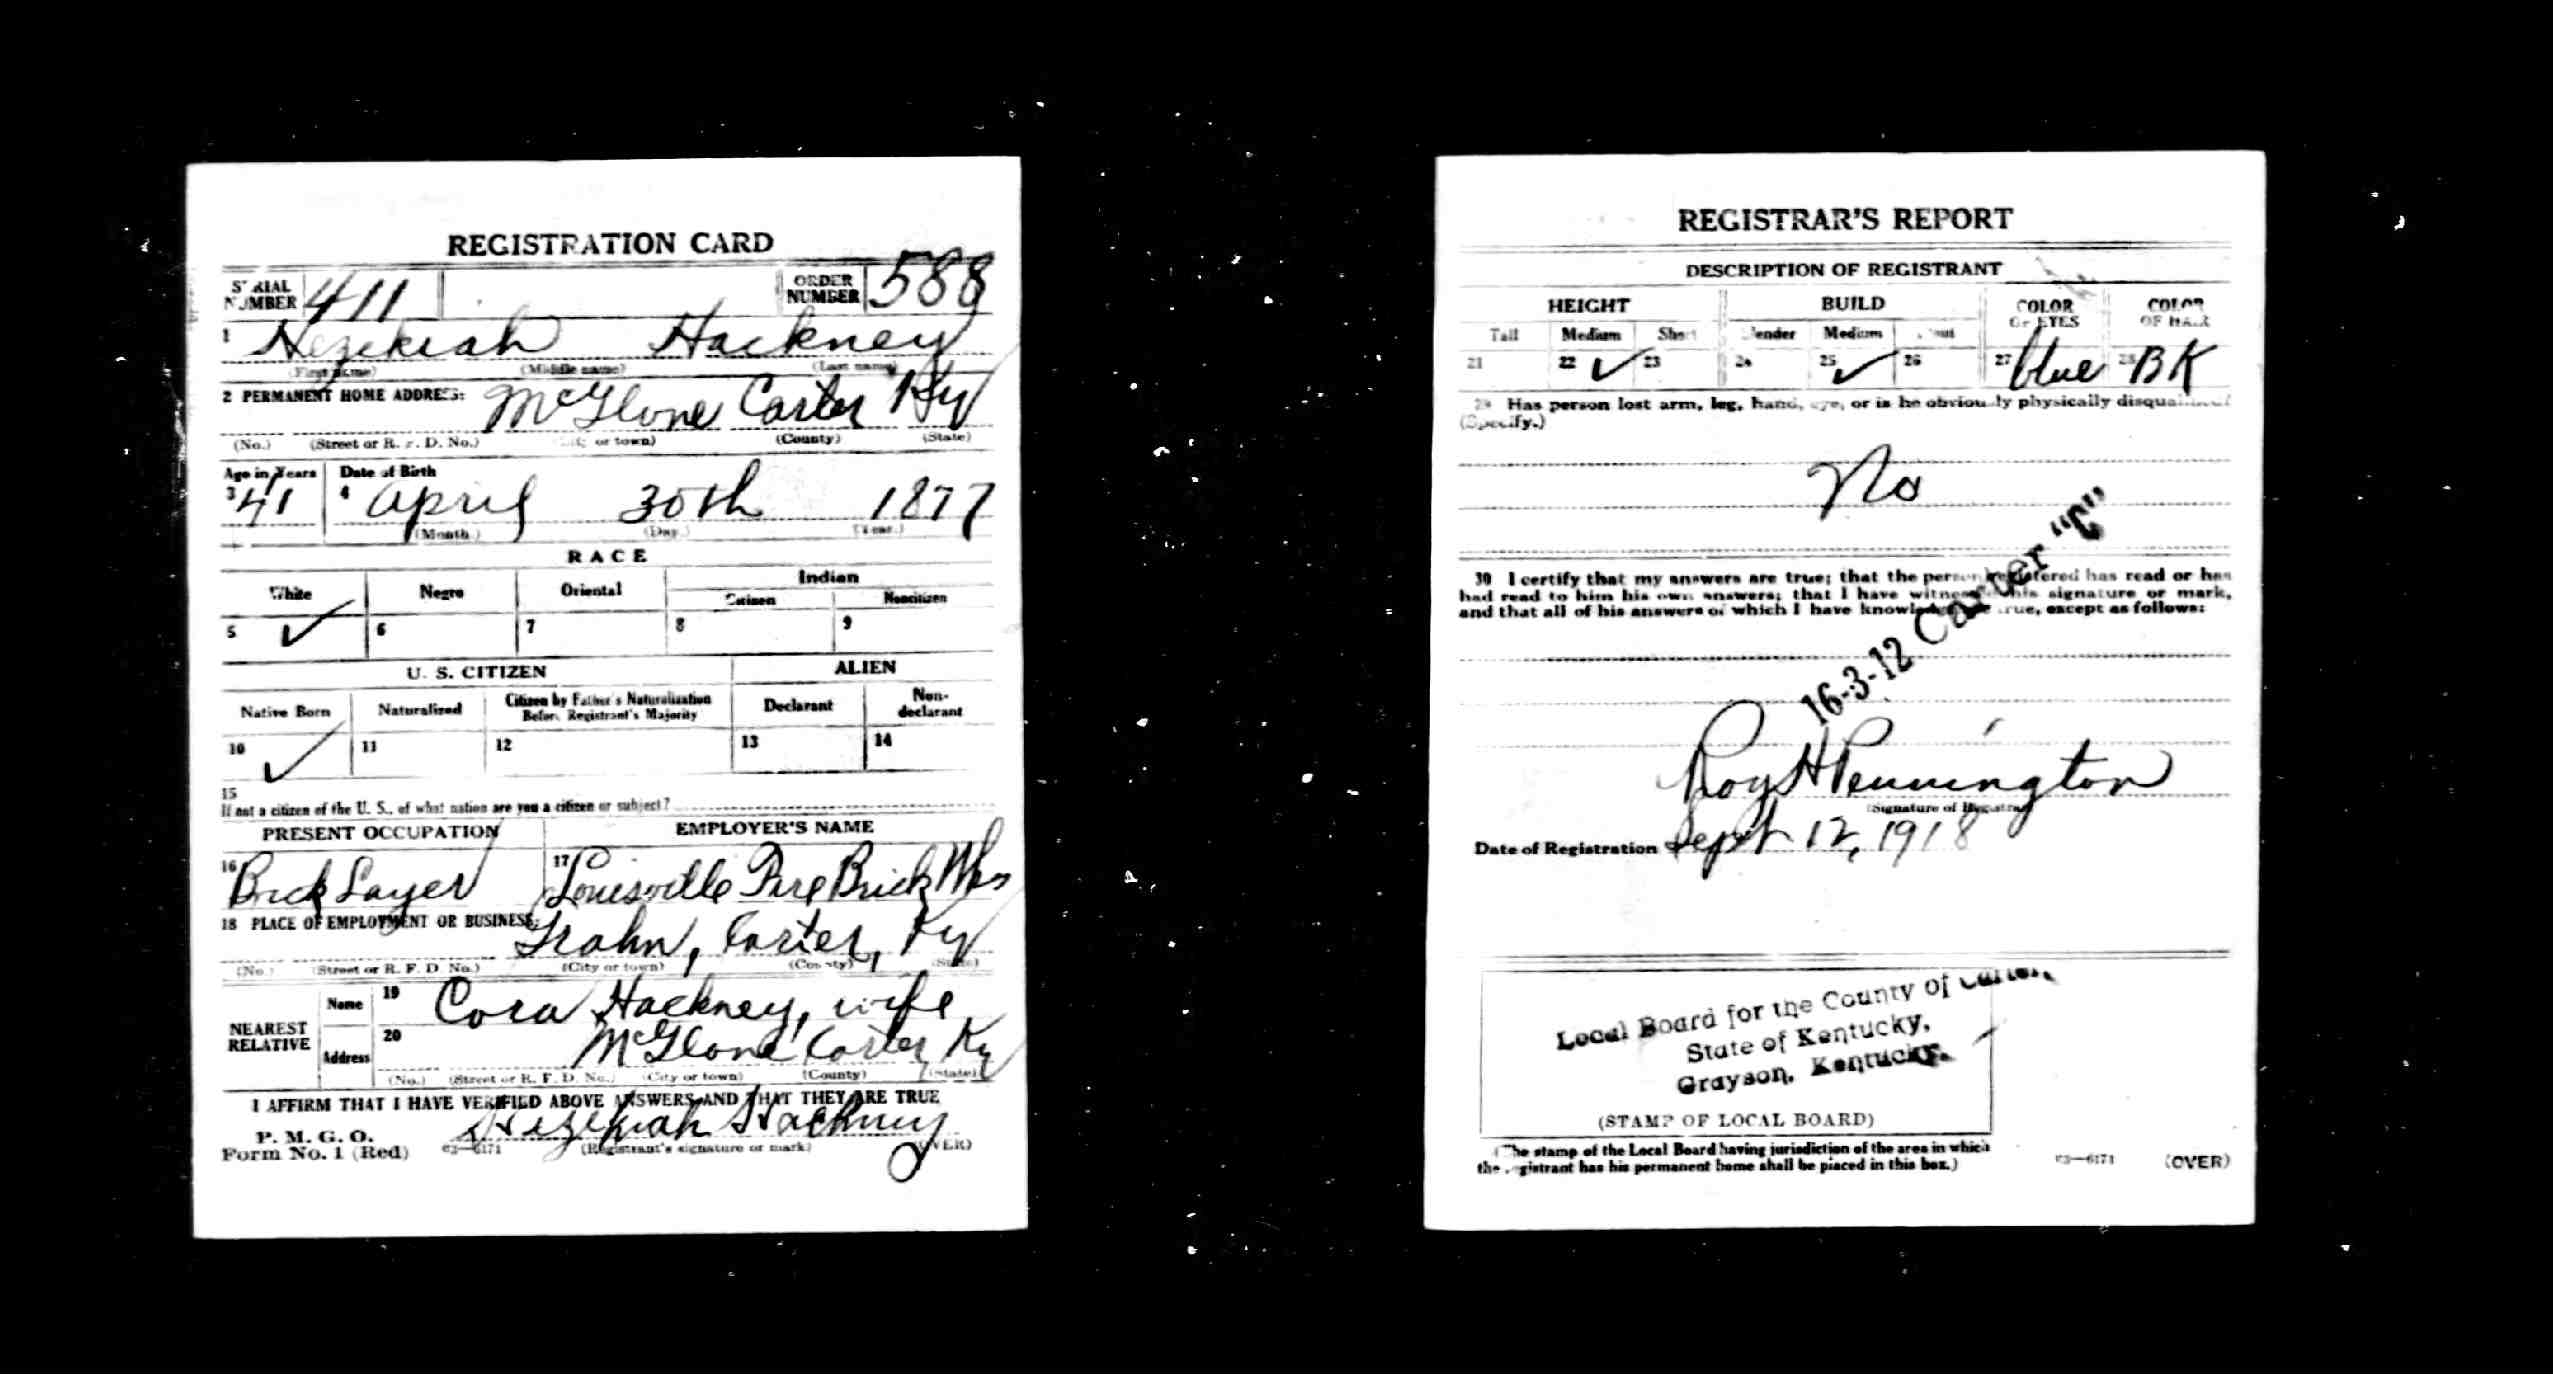 REGISTRATION CARD
SERIAL NUMBER 411 ORDER NUMBER 588
1 Hezekiah Hackney
(First name) (Middle name) (Last name)
2 PERMANENT HOME ADDRESS: McGlone Carter Ky
(No.) (Street or R. F. D. No.) (City or town) (County) (State)
Age in Years Date of Birth
3 41 4 April 30th 1877
(Month.) (Day.) (Year.)
RACE
White Negro Oriental Indian
Citizen Noncitizen
5 ✓ 6 7 8 9
U. S. CITIZEN ALIEN
Native Born Naturalized Citizen by Father's Naturalization Before Registrant's Majority Declarant Non-declarant
10 ✓ 11 12 13 14
15
If not a citizen of the U. S., of what nation are you a citizen or subject?
PRESENT OCCUPATION EMPLOYER'S NAME
16 Brick Layer 17 Louisville Fire Brick Wks
18 PLACE OF EMPLOYMENT OR BUSINESS:
Grahn, Carter, Ky
(No.) (Street or R. F. D. No.) (City or town) (County) (State)
NEAREST RELATIVE
Name 19 Cora Hackney, wife
Address 20 McGlone Carter Ky
(No.) (Street or R. F. D. No.) (City or town) (County) (State)
I AFFIRM THAT I HAVE VERIFIED ABOVE ANSWERS AND THAT THEY ARE TRUE
P. M. G. O.
Form No. 1 (Red) 03—6171 Hezekiah Hackney
(Registrant's signature or mark) (OVER)
REGISTRAR'S REPORT
DESCRIPTION OF REGISTRANT
HEIGHT BUILD COLOR OF EYES COLOR OF HAIR
Tall Medium Short Slender Medium Stout
21 22 ✓ 23 24 25 ✓ 26 27 blue 28 BK
29 Has person lost arm, leg, hand, eye, or is he obviously physically disqualified?
(Specify.)
No
30 I certify that my answers are true; that the person registered has read or has
had read to him his own answers; that I have witnessed his signature or mark,
and that all of his answers of which I have knowledge are true, except as follows:
16-3-12 Carter "C"
Roy H Pennington
(Signature of Registrar)
Date of Registration Sept 12, 1918
Local Board for the County of Carter,
State of Kentucky,
Grayson, Kentucky.
(STAMP OF LOCAL BOARD)
(The stamp of the Local Board having jurisdiction of the area in which
the registrant has his permanent home shall be placed in this box.)
03—6171 (OVER)